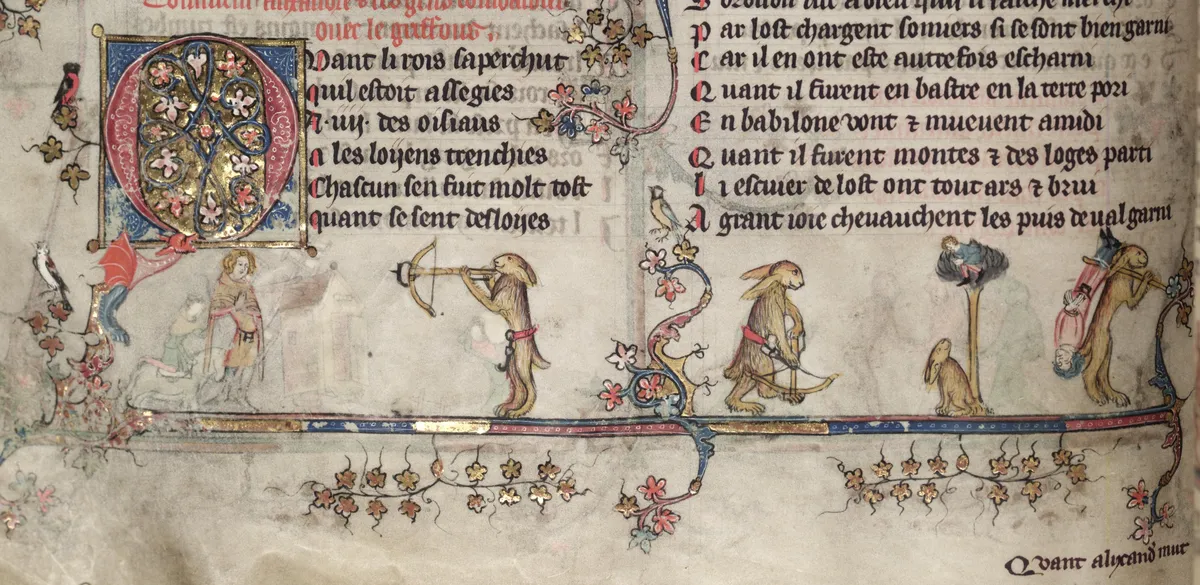 Comment alixandre & ses gens combatirent
ouec le griffons.
Quant li rois saperchut
quil estoit assegies
A·iiij· des oisiaus
a les loijens trenchies
Chascun sen fuit molt tost
quant se sent desloijes
P ar lost chargent somiers si se sont bien garni
C ar il en ont este autrefois escharni
Q uant il furent en bastre en la terre pori
E n babilone vont ⁊ mueuent amidi
Q uant il furent montes ⁊ des loges parti
l i escuier de lost ont tout ars ⁊ brui
A grant ioie cheuauchent les puis de ual garni
Quant alixand' mut